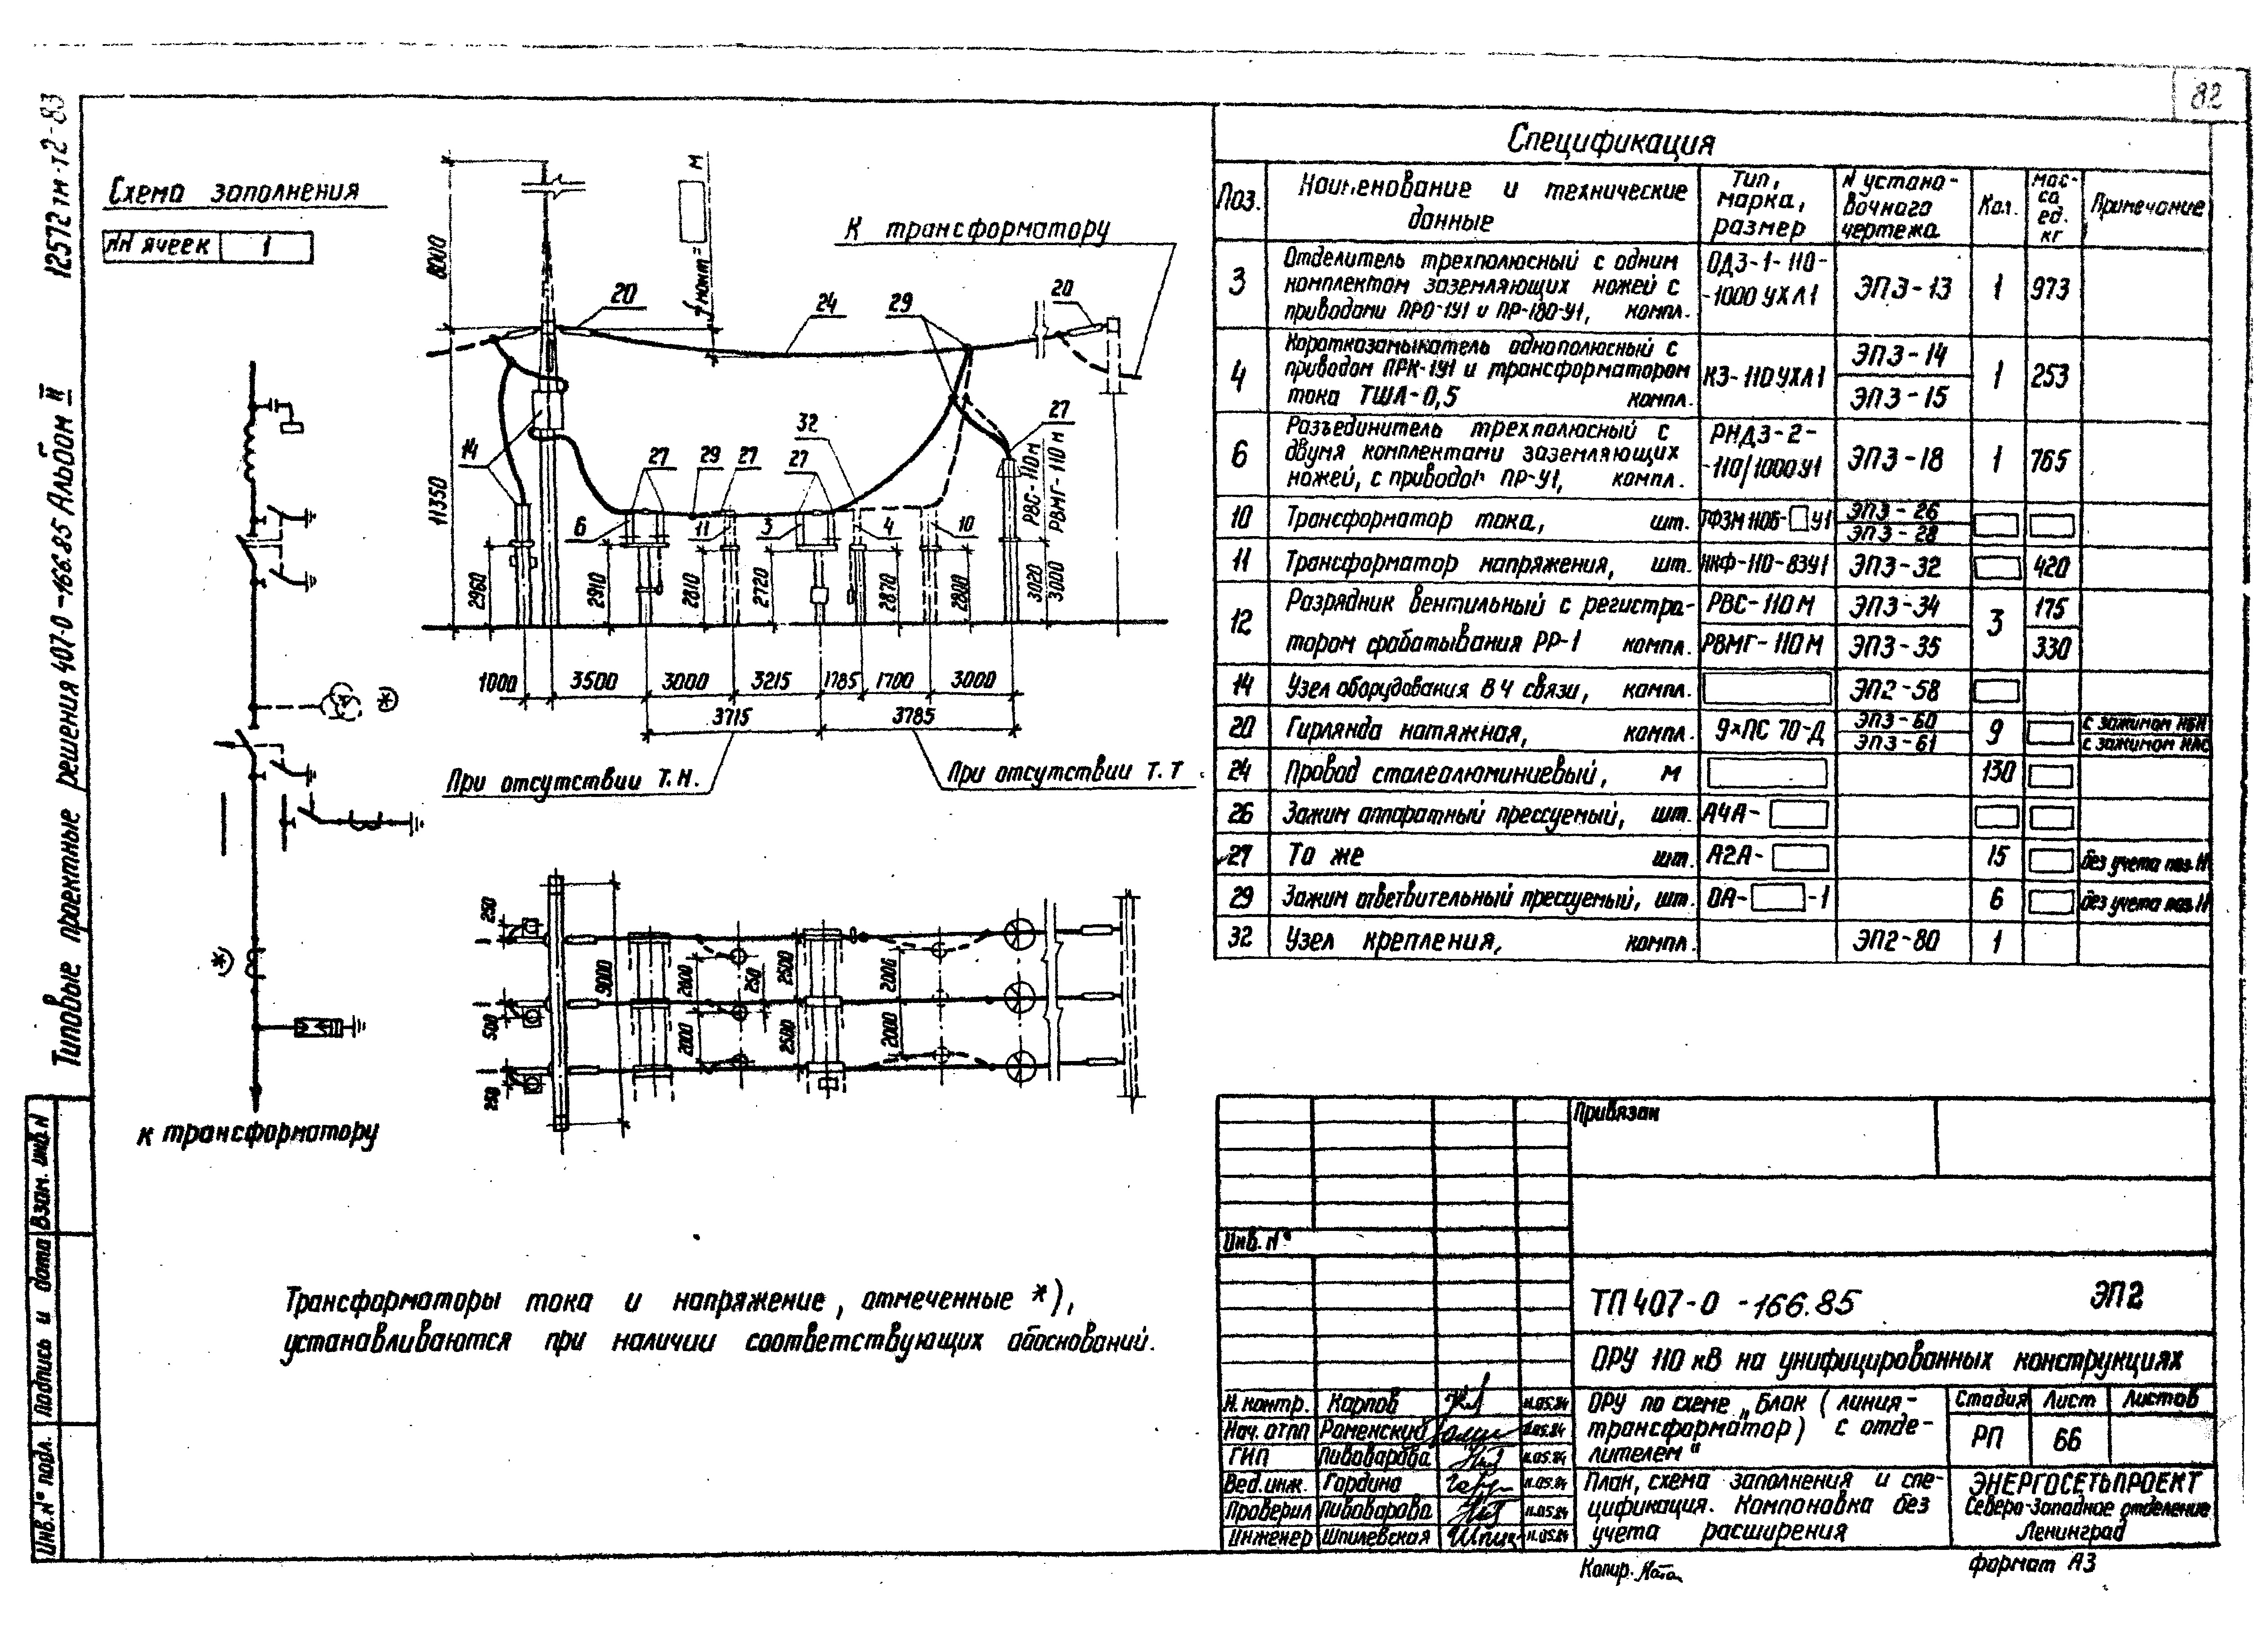 82
12572 тм-т2-83
Типовые проектные решения 407-0-166.85 Альбом II
Схема заполнения
NN ячеек 1
8000
11350
м
К трансформатору
20
24
29
20
27
32
14
27
29
27
27
6
11
3
4
10
РВС-110м
РВМГ-110м
2960
2910
2810
2720
2870
2800
3020
3000
1000
3500
3000
3215
1785
1700
3000
3715
3785
При отсутствии Т.Н.
При отсутствии Т.Т
*)
*)
к трансформатору
250
500
250
9000
2000
2000
250
2500
2500
2000
2000
Трансформаторы тока и напряжение, отмеченные *),
устанавливаются при наличии соответствующих обоснований.
Спецификация
Поз.
Наименование и технические данные
Тип, марка, размер
N устано-вочного чертежа
Кол.
мас-са ед. кг
Примечание
3 Отделитель трехполюсный с одним ОДЗ-1-110- ЭПЗ-13 1 973
комплектом заземляющих ножей с -1000 УХЛ1
приводами ПРО-1У1 и ПР-180-У1, компл.
4 Короткозамыкатель однополюсный с КЗ-110УХЛ1 ЭПЗ-14 1 253
приводом ПРК-1У1 и трансформатором ЭПЗ-15
тока ТШЛ-0,5 компл.
6 Разъединитель трехполюсный с РНДЗ-2- ЭПЗ-18 1 765
двумя комплектами заземляющих -110/1000У1
ножей, с приводом ПР-У1, компл.
10 Трансформатор тока, шт. ТФЗМ110Б- У1 ЭПЗ-26
ЭПЗ-28
11 Трансформатор напряжения, шт. НКФ-110-83У1 ЭПЗ-32 420
12 Разрядник вентильный с регистра- РВС-110М ЭПЗ-34 3 175
тором срабатывания РР-1 компл. РВМГ-110М ЭПЗ-35 330
14 Узел оборудования ВЧ связи, компл. ЭП2-58
20 Гирлянда натяжная, компл. 9×ПС 70-Д ЭПЗ-60 9 с зажимом НБН
ЭПЗ-61 с зажимом НАС
24 Провод сталеалюминиевый, м 130
26 Зажим аппаратный прессуемый, шт. А4А-
27 То же шт. А2А- 15 без учета поз.11
29 Зажим ответвительный прессуемый, шт. ОА- -1 6 без учета поз.11
32 Узел крепления, компл. ЭП2-80 1
Привязан
Инв. N°
ТП 407-0-166.85 ЭП2
ОРУ 110 кВ на унифицированных конструкциях
Н. контр. Карпов 11.05.84
Нач. отпп Роменский 11.05.84
ГИП Пивоварова 11.05.84
Вед. инж. Гордина 11.05.84
Проверил Пивоварова 11.05.84
Инженер Шпилевская 11.05.84
ОРУ по схеме „Блок (линия-
трансформатор) с отде-
лителем"
Стадия Лист Листов
РП 66
План, схема заполнения и спе-
цификация. Компоновка без
учета расширения
ЭНЕРГОСЕТЬПРОЕКТ
Северо-Западное отделение
Ленинград
Копир.
формат А3
Инв. N° подл.
Подпись и дата
Взам. инв. N